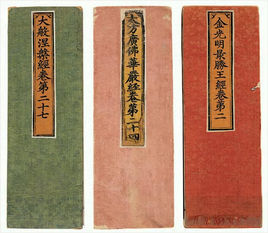 大般涅槃經卷第二十七
大方廣佛華嚴經卷第二十四
金光明最勝王經卷第二